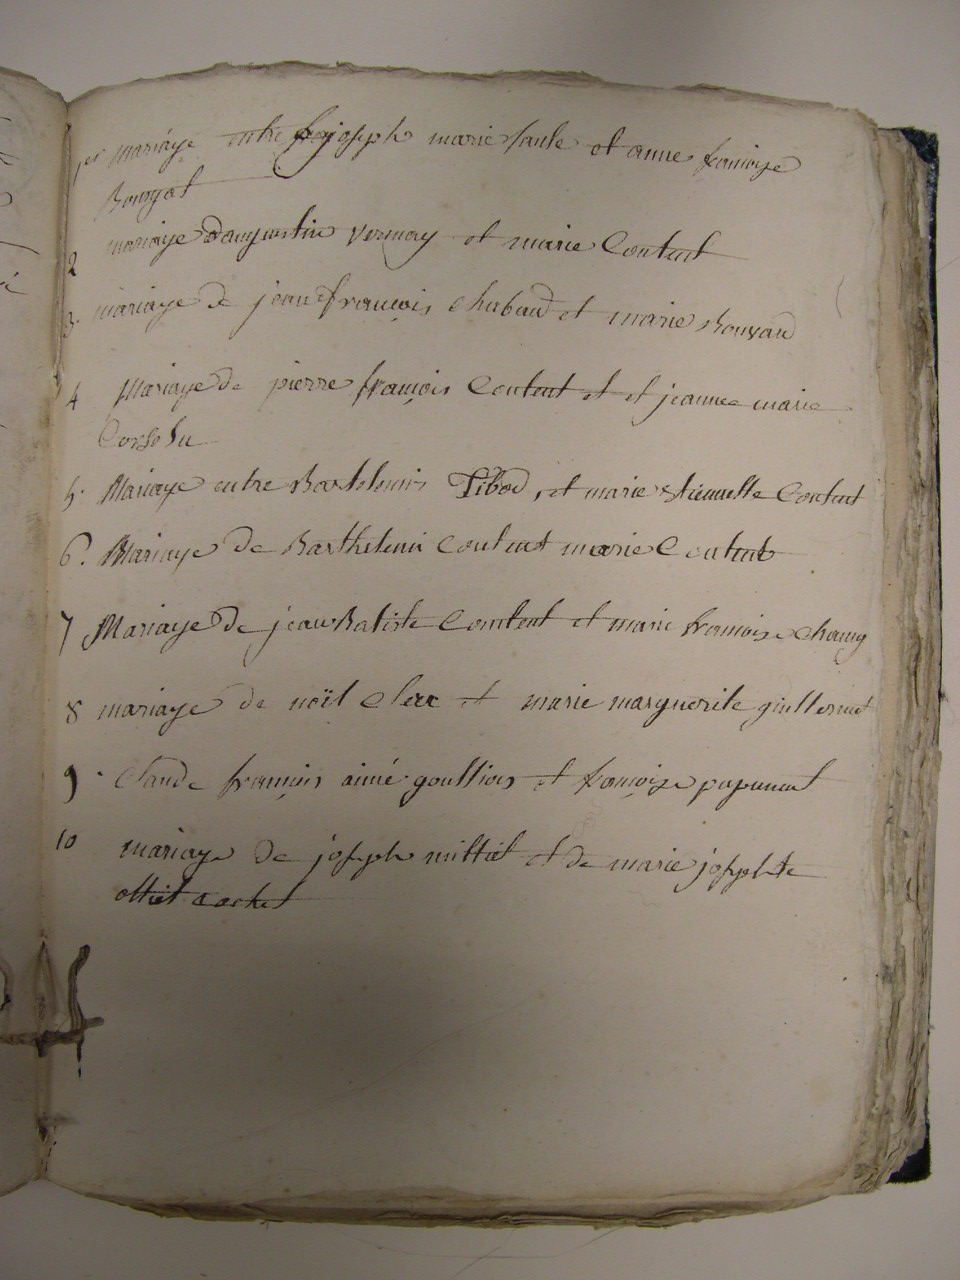 1er mariage entre joseph marie et anne françoise
Bouvat
2 mariage d'augustin vermay et marie Contat
3. mariage de jean françois chabaud et marie Bouvard
4 Mariage de pierre françois Contat et et jeanne marie
5. Mariage entre Bartelemis Tibod, et marie etiennette Contat
6. Mariage de Barthelemi Contat marie Contat
7 Mariage de jean Batiste Contat et marie françoise
8 mariage de noël Clerc et marie marguerite guillermet
9. Claude françois aimé et françoise
10 mariage de joseph mittiet et de marie josephte